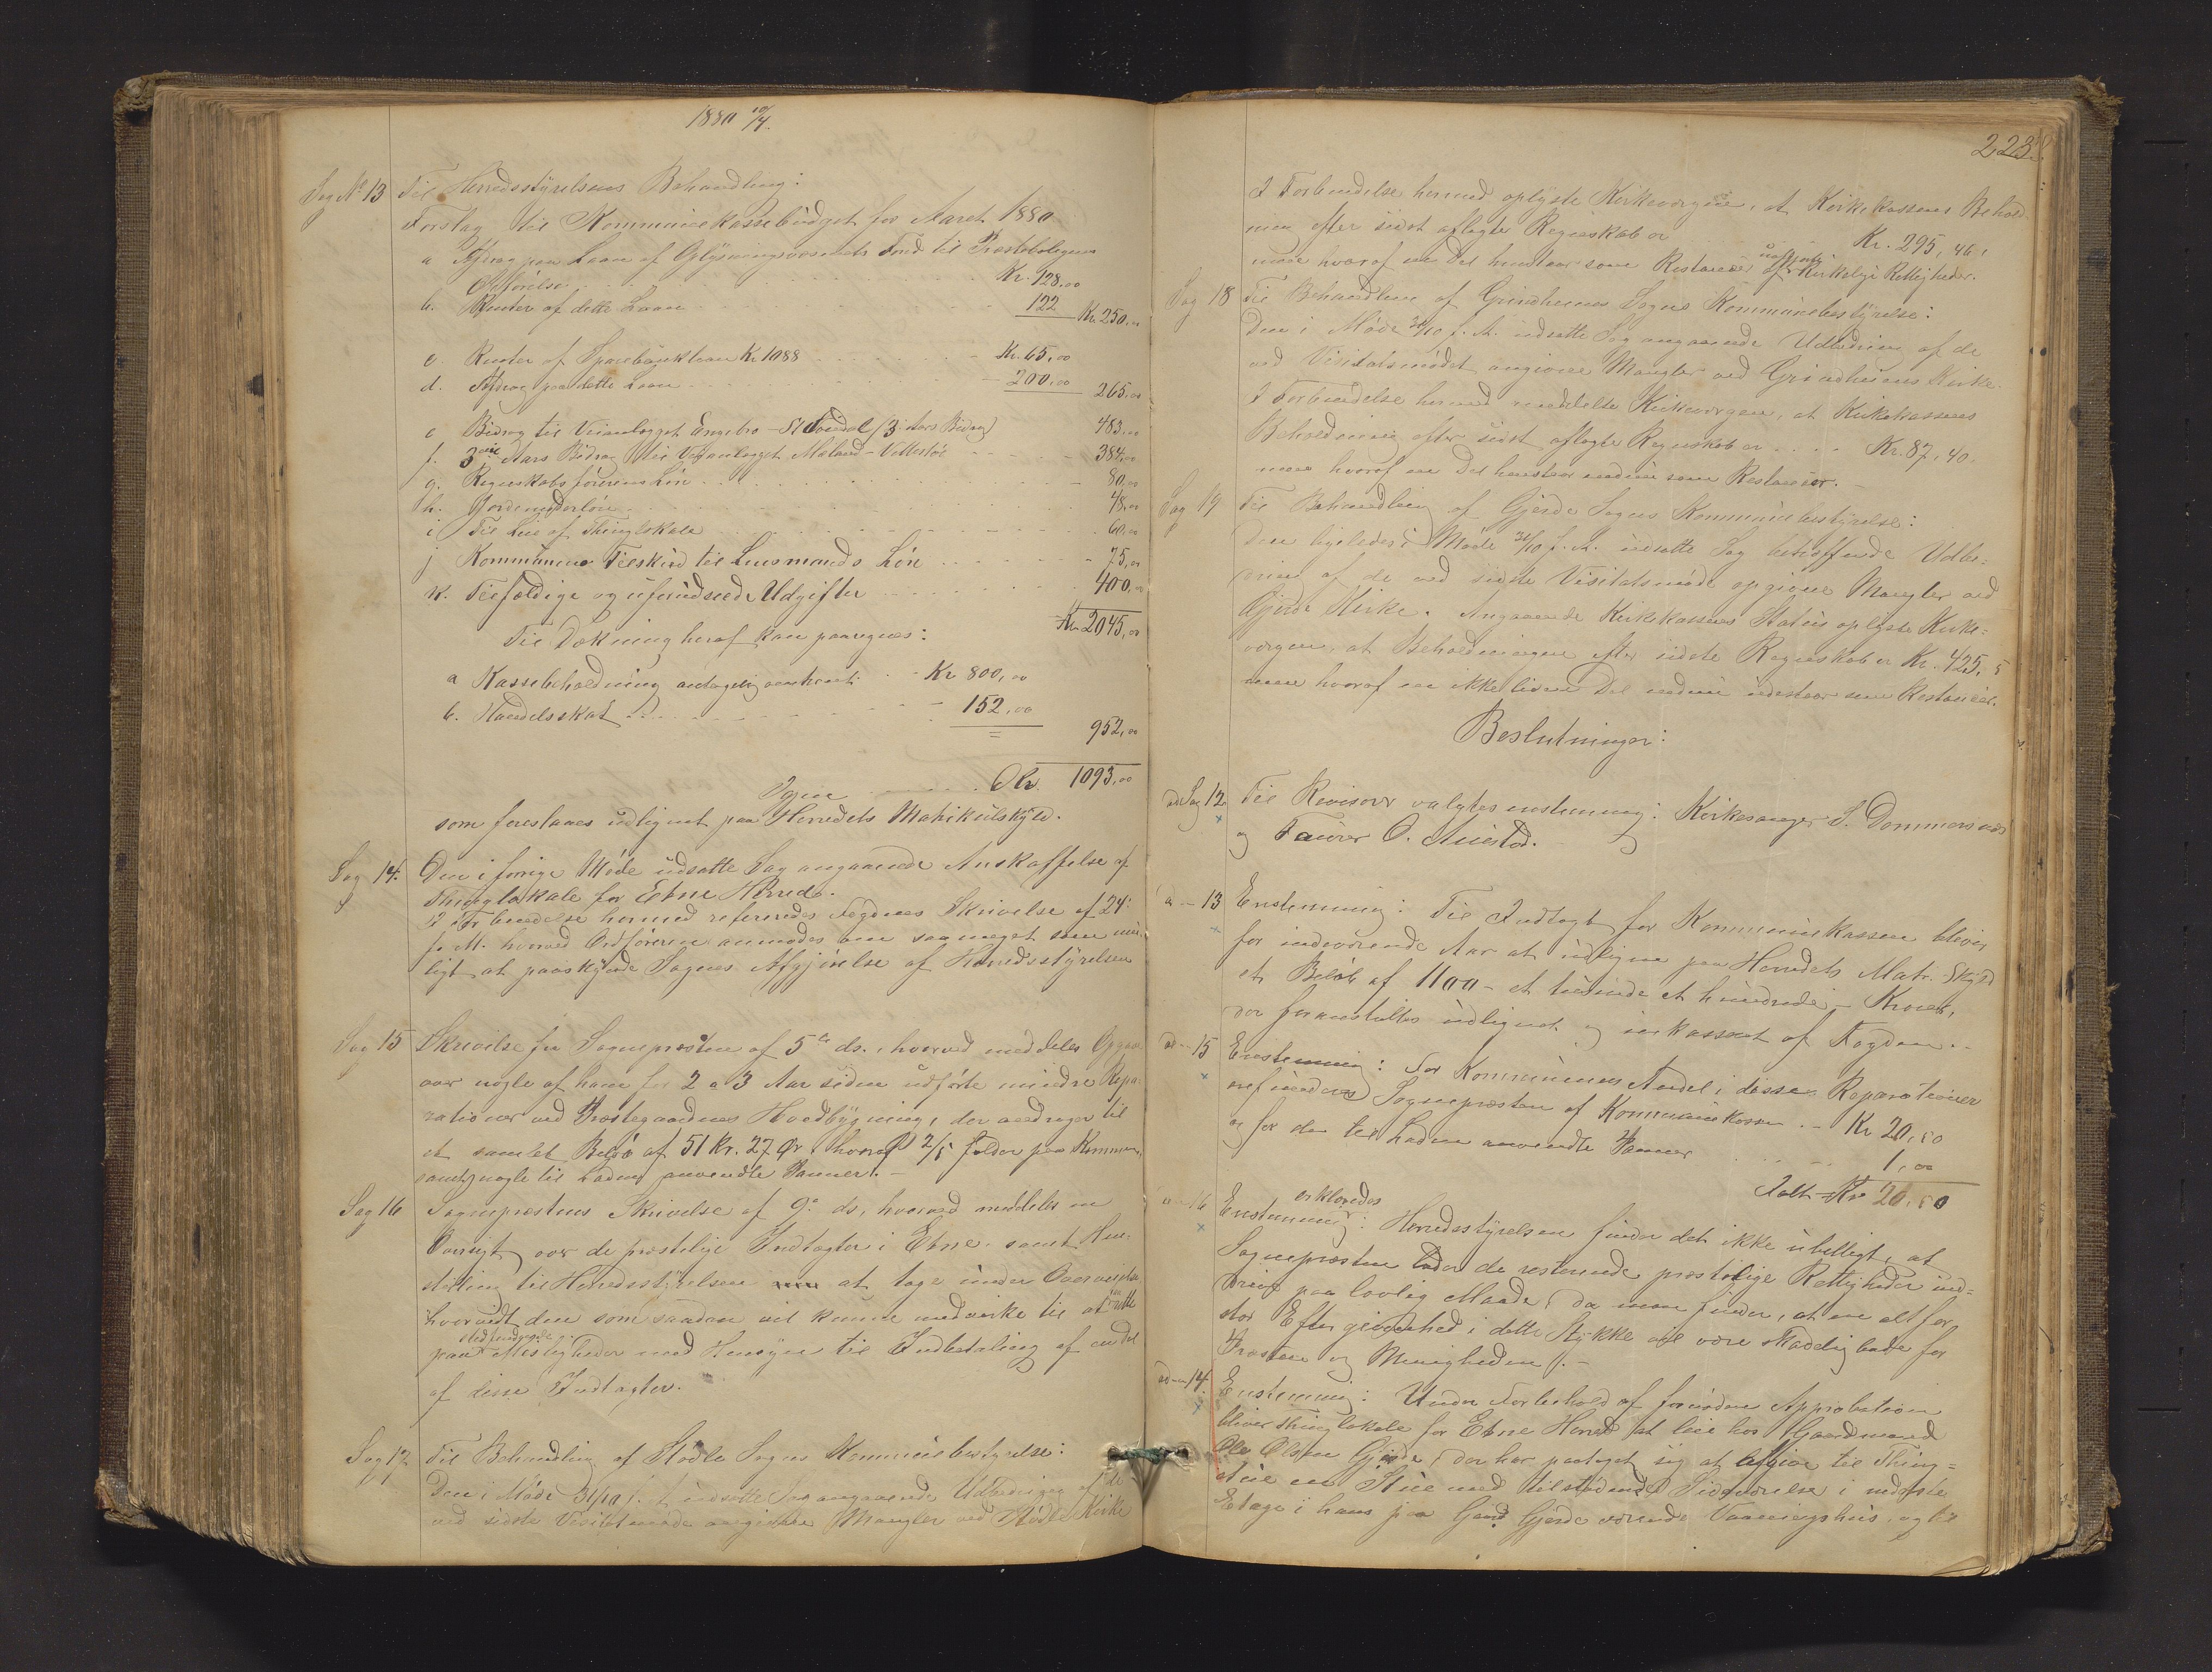 1880 10/4.
Sag No 13 Til Herredsstyrelsens Behandling:
Forslag til Kommunekassebudget for Aaret 1880
a Afdrag paa Laan af Oplysningsvæsenets Fond til Præstebolegens
Opførelse Kr. 128.00
b. Renter af dette Laan 122 Kr 250.00
c. Renter af Sparebanklaan Kr. 1088 Kr. 65,00
d. Afdrag paa dette Laan 200,00 265.00
e Bidrag til Veianlægget Ængebro - (3die Aars Bidrag) 483,00
f. 3die Aars Bidrag til Veianlægget Maland - 384,00
g. Regnskabsførerens Løn 80,00
h. Jordemoderløn 48,00
i Til Leie af Thinglokale 60,00
j Kommunens Tilskud til Lensmands Løn 75,00
k. Tilfældige og uforudseede Udgifter 400,00
Kr 2045,00
Til Dækning heraf kan paaregnes:
a Kassebeholdning antagelig omtrent Kr 800,00
b. Handelsskat 152.00
952,00
Igjen Kr. 1093,00
som foreslaaes udlignet paa Herredets Matrikulskyld.
Sag 14. Den i forrige Møde udsatte Sag angaaende Anskaffelse af
Thinglokale for Etne Herred.
I Forbindelse hermed refereredes Fogdens Skrivelse af 24.
f. M. hvorved Ordføreren anmodes om saameget som mu-
ligt at paaskynde Sagens Afgjørelse af Herredsstyrelsen
Sag 15 Skrivelse fra Sognepræsten af 5te ds., hvorved meddeles Opgave
over nogle af ham for 2 a 3 Aar siden udførte mindre Repa-
rationer ved Præstegaardens Hovedbygning, der andrager til
et samlet Beløb af 51 Kr. 27 Ør hvoraf 2/5 falder paa Kommunen,
samt nogle til Laden anvendte Panner. -
Sag 16 Sognepræstens Skrivelse af 9de ds, hvorved meddeles en
Oversigt over de præstelige Indtægter i Etne samt Hen-
stilling til Herredsstyrelsen at tage under Overveielse
hvorvidt den som saadan vil kunne medvirke til at rette
paa stedfindende Misligheder med Hensyn til Indbetaling af endel
af disse Indtægter.
Sag 17 Til Behandling af Stødle Sogns Kommunebestyrelse:
Den i Møde 31/10 f. A. udsatte Sag angaaende Udbedringen af de
ved sidste Visitatsmøde angivne Mangler ved Stødle Kirke
223.
I Forbindelse hermed oplyste Kirkeværgen, at Kirkekassens Behold-
ning efter sidst aflagte Regnskab er Kr. 295,46,
men hvoraf en Del henstaar som Restancer af uopgjorte Kirkelige Rettigheder.
Sag 18 Til Behandling af Grindheims Sogns Kommunebestyrelse:
Den i Møde 31/10 f. A. udsatte Sag angaaende Udbedring af de
ved Visitatsmødet angivne Mangler ved Grindheims Kirke.
I Forbindelse hermed meddelte Kirkeværgen, at Kirkekassens
Beholdning efter sidst aflagte Regnskab er Kr. 87,40.
men hvoraf en Del henstaar endnu som Restancer. -
Sag 19 Til Behandling af Gjerde Sogns Kommunebestyrelse:
Den ligeledes i Møde 31/10 f. A. udsatte Sag betræffende Udbe-
dring af de ved sidste Visitatsmøde opgivne Mangler ved
Gjerde Kirke. Angaaende Kirkekassens Status oplyste Kirke-
værgen, at Beholdningen efter sidste Regnskab er Kr. 425,
men hvoraf en ikke liden Del endnu udestaar som Restancer.
Beslutninger:
ad Sag 12 Til Revisorer valgtes enstemmig: Kirkesanger S. Dommersnæs
og O. Austad.
a - 13 Enstemmig: Til Indtægt for Kommunekassen bliver
for indeværende Aar at udligne paa Herredets Matr. Skyld
et Beløb af 1100 - et tusinde et hundrede - Kroner,
der foranstaltes udlignet og inkasseret af Fogden. -
ad - 15 Enstemmig: For Kommunens Andel i disse Reparationer
refunderes Sognepræsten af Kommunekassen - Kr 20,50
og for de til Laden anvendte Panner 1,00
Ialt Kr 21,50
a - 16 Enstemmig erklæredes: Herredsstyrelsen finder det ikke ubilligt, at
Sognepræsten lader de resterende præstelige Rettigheder ind-
drive paa lovlig Maade, da man finder, at en altfor
stor Eftergivenhed i dette Stykke vil være skadelig baade for
Præsten og Menigheden. -
ad - 14. Enstemmig: Under Forbehold af fornøden Approbation
bliver Thinglokale for Etne Herred at leie hos Gaardmand
Ole Olsen Gjerde, der har paataget sig at afgive til Thing-
stue en Stue med tilstødende Sideværelse i nederste
Etage i hans paa Gaard Gjerde værende Vaaningshus, og